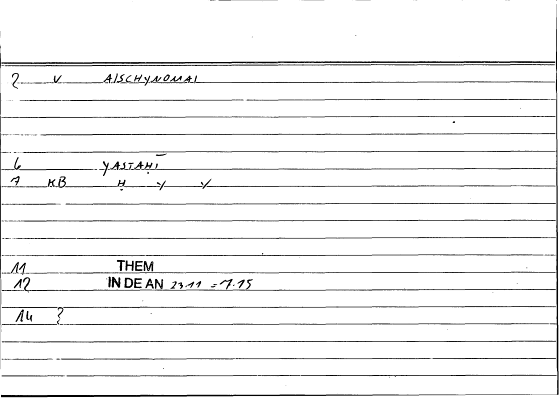 2 V AISCHYNOMAI
6 YASTAḤĪ
7 KB Ḥ Y Y
11 THEM
12 IN DE AN 23.11 = 7.15
14 ?